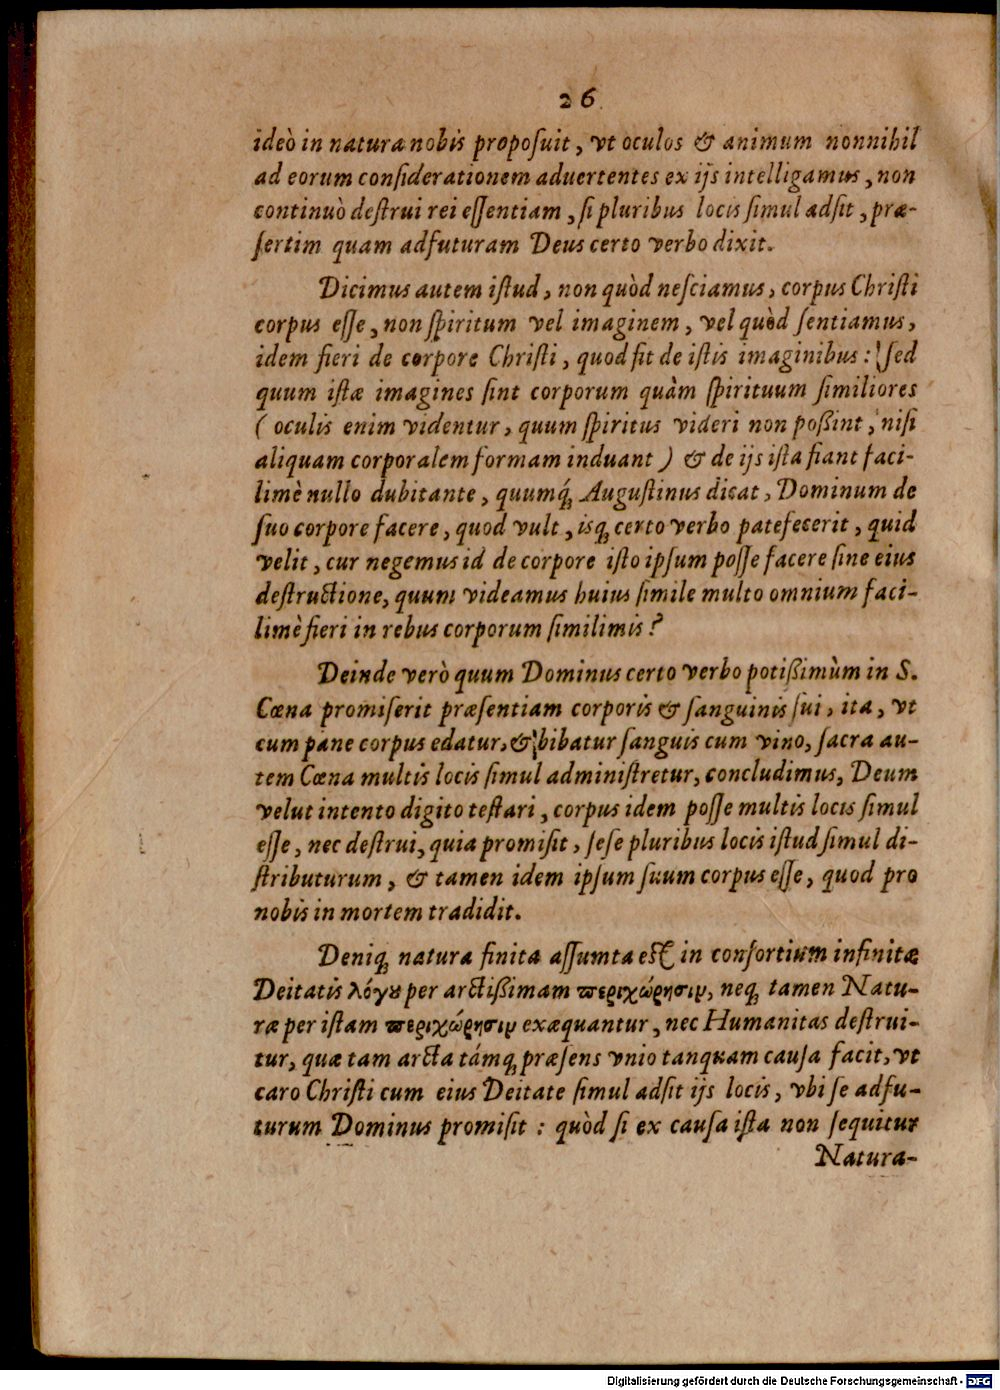 26
ideò in natura nobis propoſuit, vt oculos & animum nonnihil
ad eorum conſiderationem aduertentes ex ijs intelligamus, non
continuò deſtrui rei eſſentiam, ſi pluribus locis ſimul adſit, præ-
ſertim quam adfuturam Deus certo verbo dixit.
Dicimus autem iſtud, non quòd neſciamus, corpus Chriſti
corpus eſſe, non ſpiritum vel imaginem, vel quòd ſentiamus,
idem fieri de corpore Chriſti, quod ſit de iſtis imaginibus: ſed
quum iſtæ imagines ſint corporum quàm ſpirituum ſimiliores
( oculis enim videntur, quum ſpiritus videri non poßint, niſi
aliquam corporalem formam induant ) & de ijs iſta fiant faci-
limè nullo dubitante, quumq́ꝫ Auguſtinus dicat, Dominum de
ſuo corpore facere, quod vult, isqꝫ certo verbo patefecerit, quid
velit, cur negemus id de corpore iſto ipſum poſſe facere ſine eius
deſtructione, quum videamus huius ſimile multo omnium faci-
limè fieri in rebus corporum ſimilimis?
Deinde verò quum Dominus certo verbo potißimùm in S.
Cœna promiſerit præſentiam corporis & ſanguinis ſui, ita, vt
cum pane corpus edatur, & bibatur ſanguis cum vino, ſacra au-
tem Cœna multis locis ſimul adminiſtretur, concludimus, Deum
velut intento digito teſtari, corpus idem poſſe multis locis ſimul
eſſe, nec deſtrui, quia promiſit, ſeſe pluribus locis iſtud ſimul di-
ſtributurum, & tamen idem ipſum ſuum corpus eſſe, quod pro
nobis in mortem tradidit.
Deniqꝫ natura finita aſſumta eſt in conſortium infinitæ
Deitatis λόγȣ per arctißimam ϖεριχώρησιν, neqꝫ tamen Natu-
ræ per iſtam ϖεριχώρησιν exæquantur, nec Humanitas deſtrui-
tur, quæ tam arcta támqꝫ præſens vnio tanquam cauſa facit, vt
caro Chriſti cum eius Deitate ſimul adſit ijs locis, vbi ſe adfu-
turum Dominus promiſit : quòd ſi ex cauſa iſta non ſequitur
Natura-
Digitalisierung gefördert durch die Deutsche Forschungsgemeinschaft - DFG